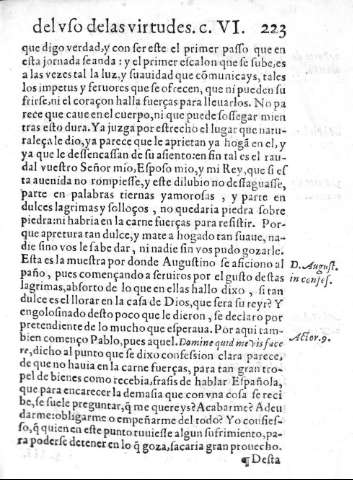 del vso delas virtudes. c. VI. 223
que digo verdad, y con ser este el primer passo que en
esta jornada se anda: y el primer escalon que se sube, es
a las vezes tal la luz, y suauidad que cõmunicays, tales
los impetus y feruores que se ofrecen, que ni pueden su
frirse, ni el coraçon halla fuerças para lleuarlos. No pa
rece que caue en el cuerpo, ni que puede sossegar mien
tras esto dura. Ya juzga por estrecho el lugar que natu-
raleça le dio, ya parece que le aprietan ya hogã en el, y
ya que le dessencassan de su asiento: en fin tal es el rau-
dal vuestro Señor mio, Esposo mio, y mi Rey, que si es
ta auenida no rompiesse, y este dilubio no dessaguasse,
parte en palabras tiernas yamorosas, y parte en
dulces lagrimas y solloços, no quedaria piedra sobre
piedra: ni habria en la carne fuerças para resistir. Por-
que apretura tan dulce, y mate a hogado tan suaue, na-
die sino vos le sabe dar, ni nadie sin vos pudo gozarle.
Esta es la muestra por donde Augustino se aficiono al
paño, pues començando a seruiros por el gusto destas
lagrimas, absorto de lo que en ellas hallo dixo, si tan
dulce es el llorar en la casa de Dios, que sera su reyr? Y
engolosinado desto poco que le dieron, se declaro por
pretendiente de lo mucho que esperaua. Por aqui tam-
bien començo Pablo, pues aquel. Domine quid me vis face
re, dicho al punto que se dixo confession clara parece,
de que no hauia en la carne fuerças, para tan gran tro-
pel de bienes como recebia, frasis de hablar Española,
que para encarecer la demasia que con vna cosa se reci
be, se suele preguntar, q̃ me quereys? Acabarme? Adeu
darme: obligarme o empeñarme del todo? Yo confies-
so, q̃ quien en este punto tuuiesse algun sufrimiento, pa-
ra poderse detener en lo q̃ goza, sacaria gran prouecho.
¶ Desta
D. August.
in confes.
Actor. 9.